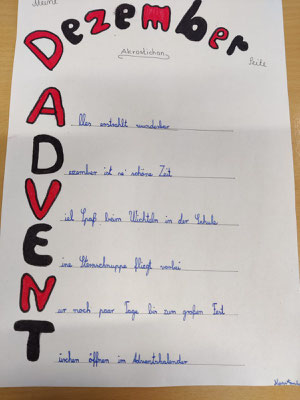 Meine
Dezember
Seite
Akrostichon
D
A lles erstrahlt wunderbar
D ezember ist 'ne schöne Zeit
V iel Spaß beim Wichteln in der Schule
E ine Sternschnuppe fliegt vorbei
N ur noch paar Tage bis zum großen Fest
T ürchen öffnen im Adventskalender